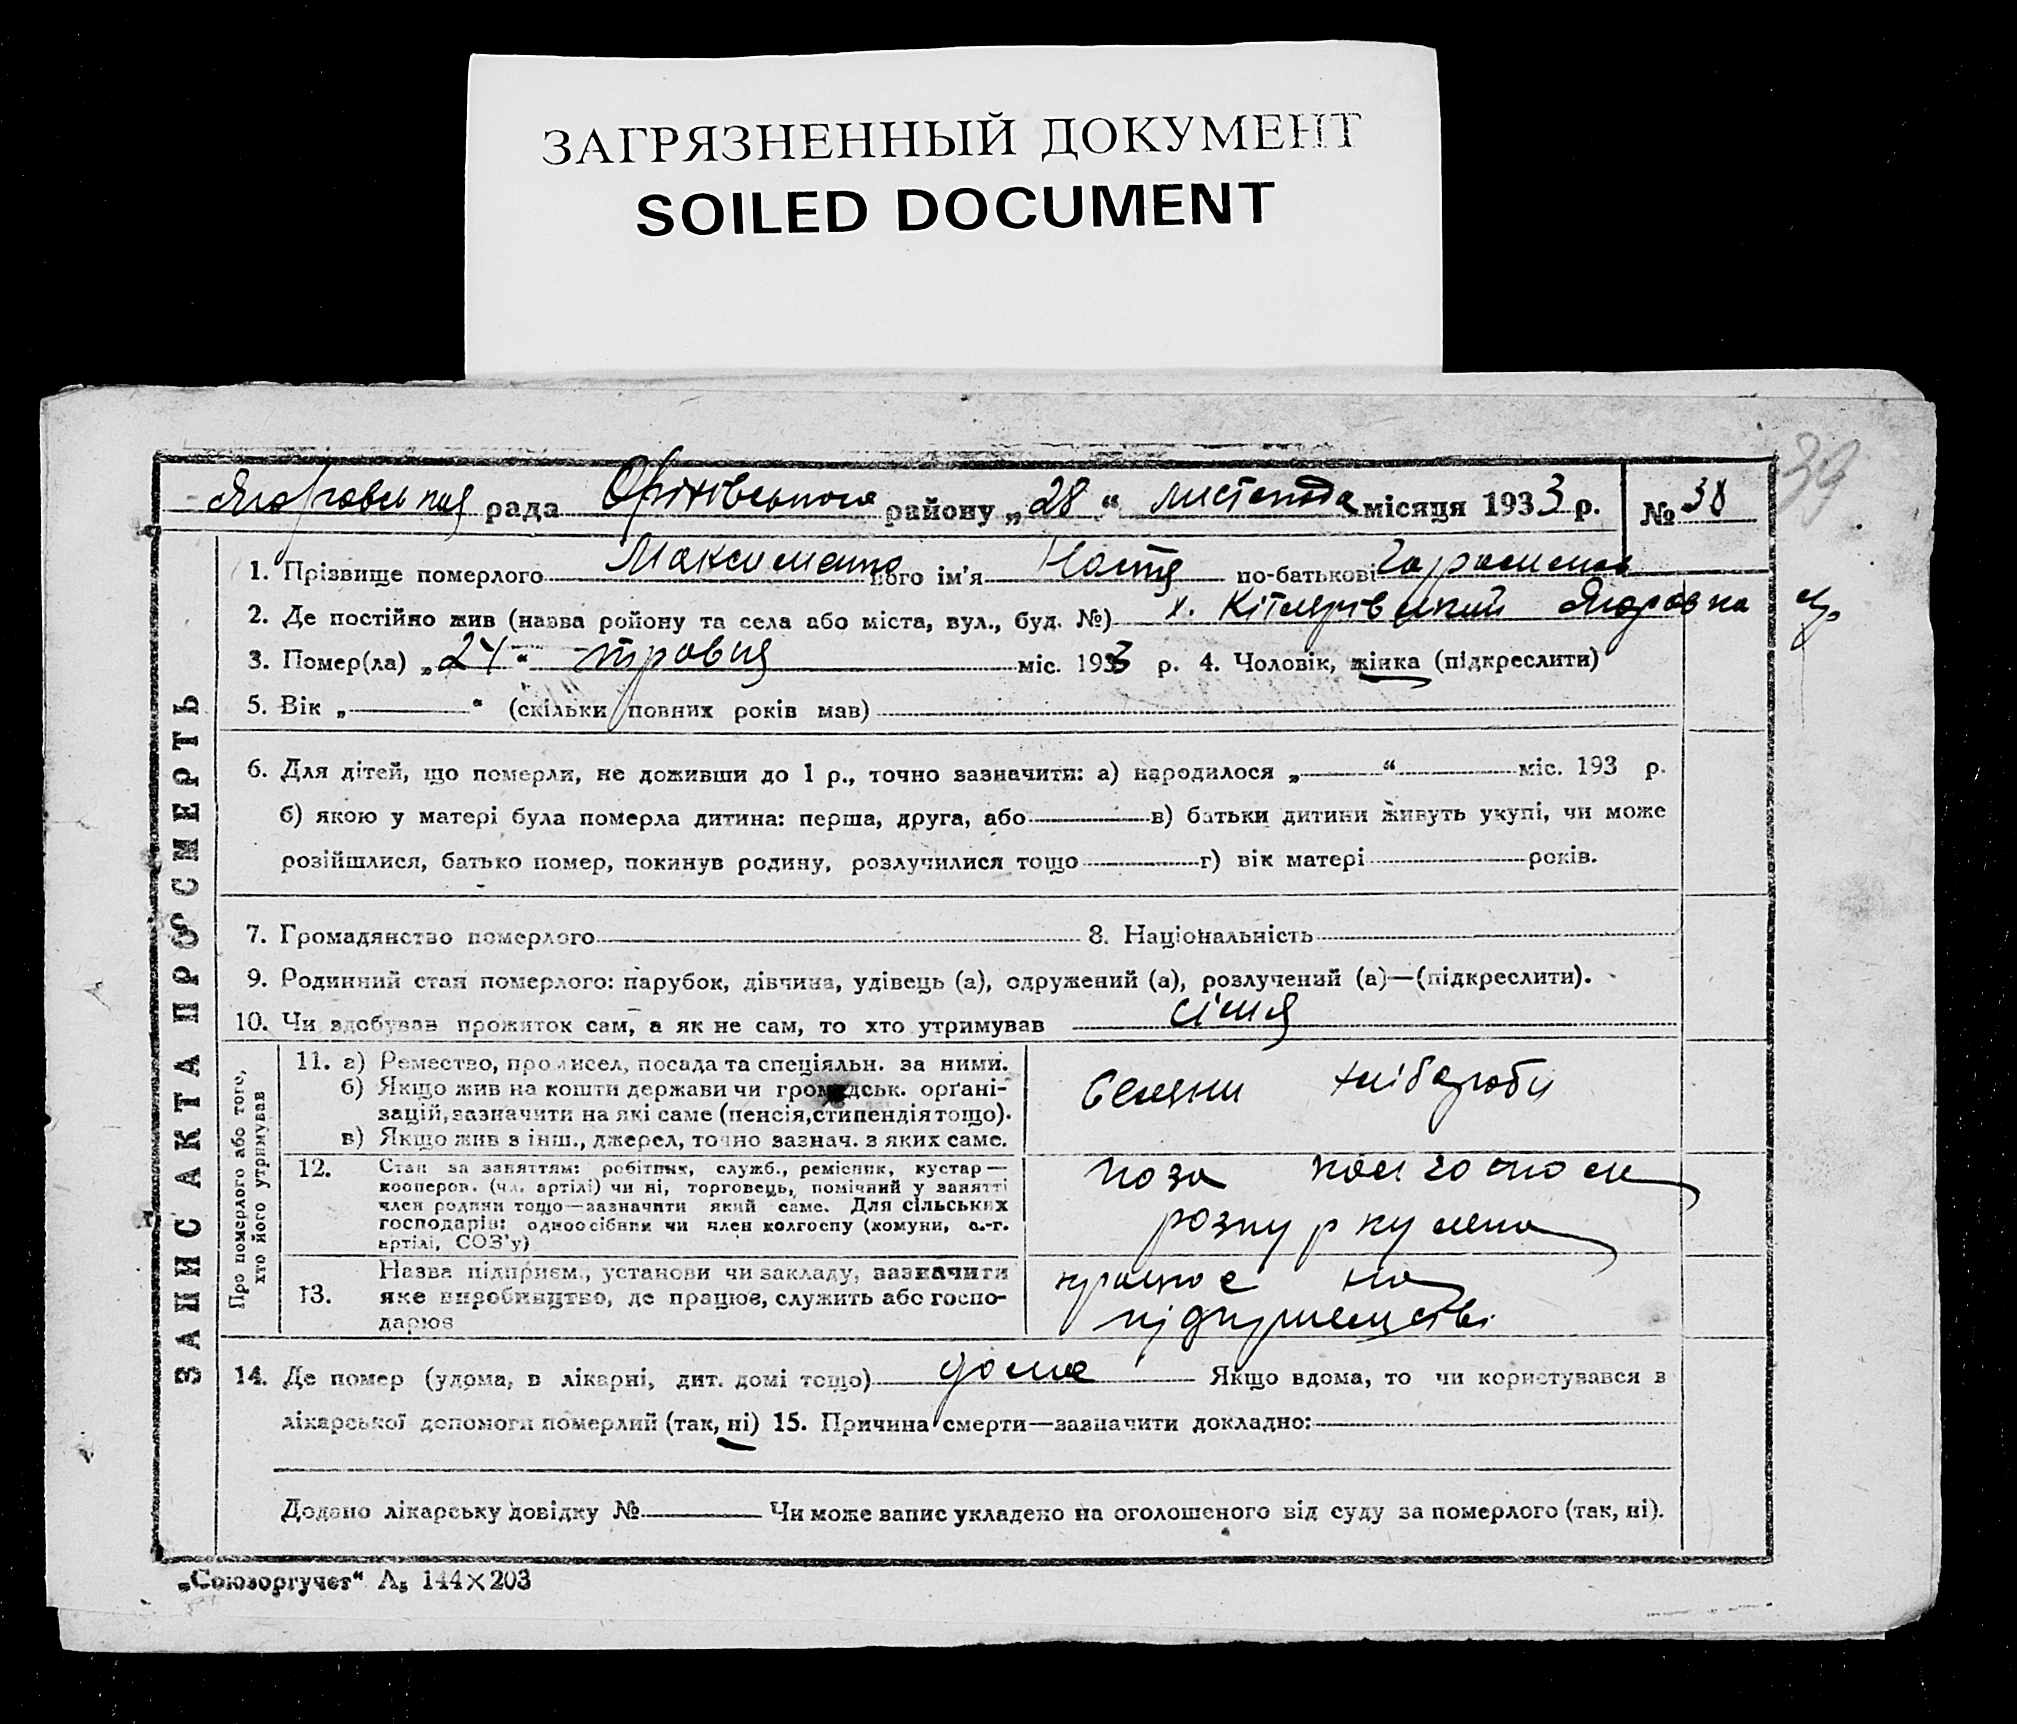 ЗАГРЯЗНЕННЫЙ ДОКУМЕНТ
SOILED DOCUMENT
39
рада Оріхівського району „28“ листопада місяця 1933 р. № 38
ЗАПИС АКТА ПРО СМЕРТЬ
1. Прізвище померлого Максименко його ім'я Настя по-батькові
2. Де постійно жив (назва району та села або міста, вул., буд. №) х.
3. Помер(ла) „24“ травня міс. 1933 р. 4. Чоловік, жінка (підкреслити)
5. Вік „ “ (скільки повних років мав)
6. Для дітей, що померли, не доживши до 1 р., точно зазначити: а) народилося „ “ міс. 193 р.
б) якою у матері була померла дитина: перша, друга, або в) батьки дитини живуть укупі, чи може
розійшлися, батько помер, покинув родину, розлучилися тощо г) вік матері років.
7. Громадянство померлого 8. Національність
9. Родинний стан померлого: парубок, дівчина, удівець (а), одружений (а), розлучений (а)—(підкреслити).
10. Чи здобував прожиток сам, а як не сам, то хто утримував сімя
Про померлого або того, хто його утримував
11. а) Ремество, промисел, посада та спеціяльн. за ними.
б) Якщо жив на кошти держави чи громадськ. орґані-
зацій, зазначити на які саме (пенсія, стипендія тощо).
в) Якщо жив з інш., джерел, точно зазнач. з яких саме.
хліборобі
12. Стан за заняттям: робітник, служб., ремісник, кустар—
кооперов. (чл. артілі) чи ні, торговець, помічний у занятті
член родини тощо—зазначити який саме. Для сільських
господарів: одноосібник чи член колгоспу (комуни, с.-г.
артілі, СОЗ'у)
поза колгоспом
розкуркулена
13. Назва підприєм., установи чи закладу, зазначити
яке виробництво, де працює, служить або госпо-
дарює
працює на
підприємстві
14. Де помер (удома, в лікарні, дит. домі тощо) дома Якщо вдома, то чи користувався в
лікарської допомоги померлий (так, ні) 15. Причина смерти—зазначити докладно:
Додано лікарську довідку № Чи може запис укладено на оголошеного від суду за померлого (так, ні).
„Союзоргучет“ А₅ 144×203